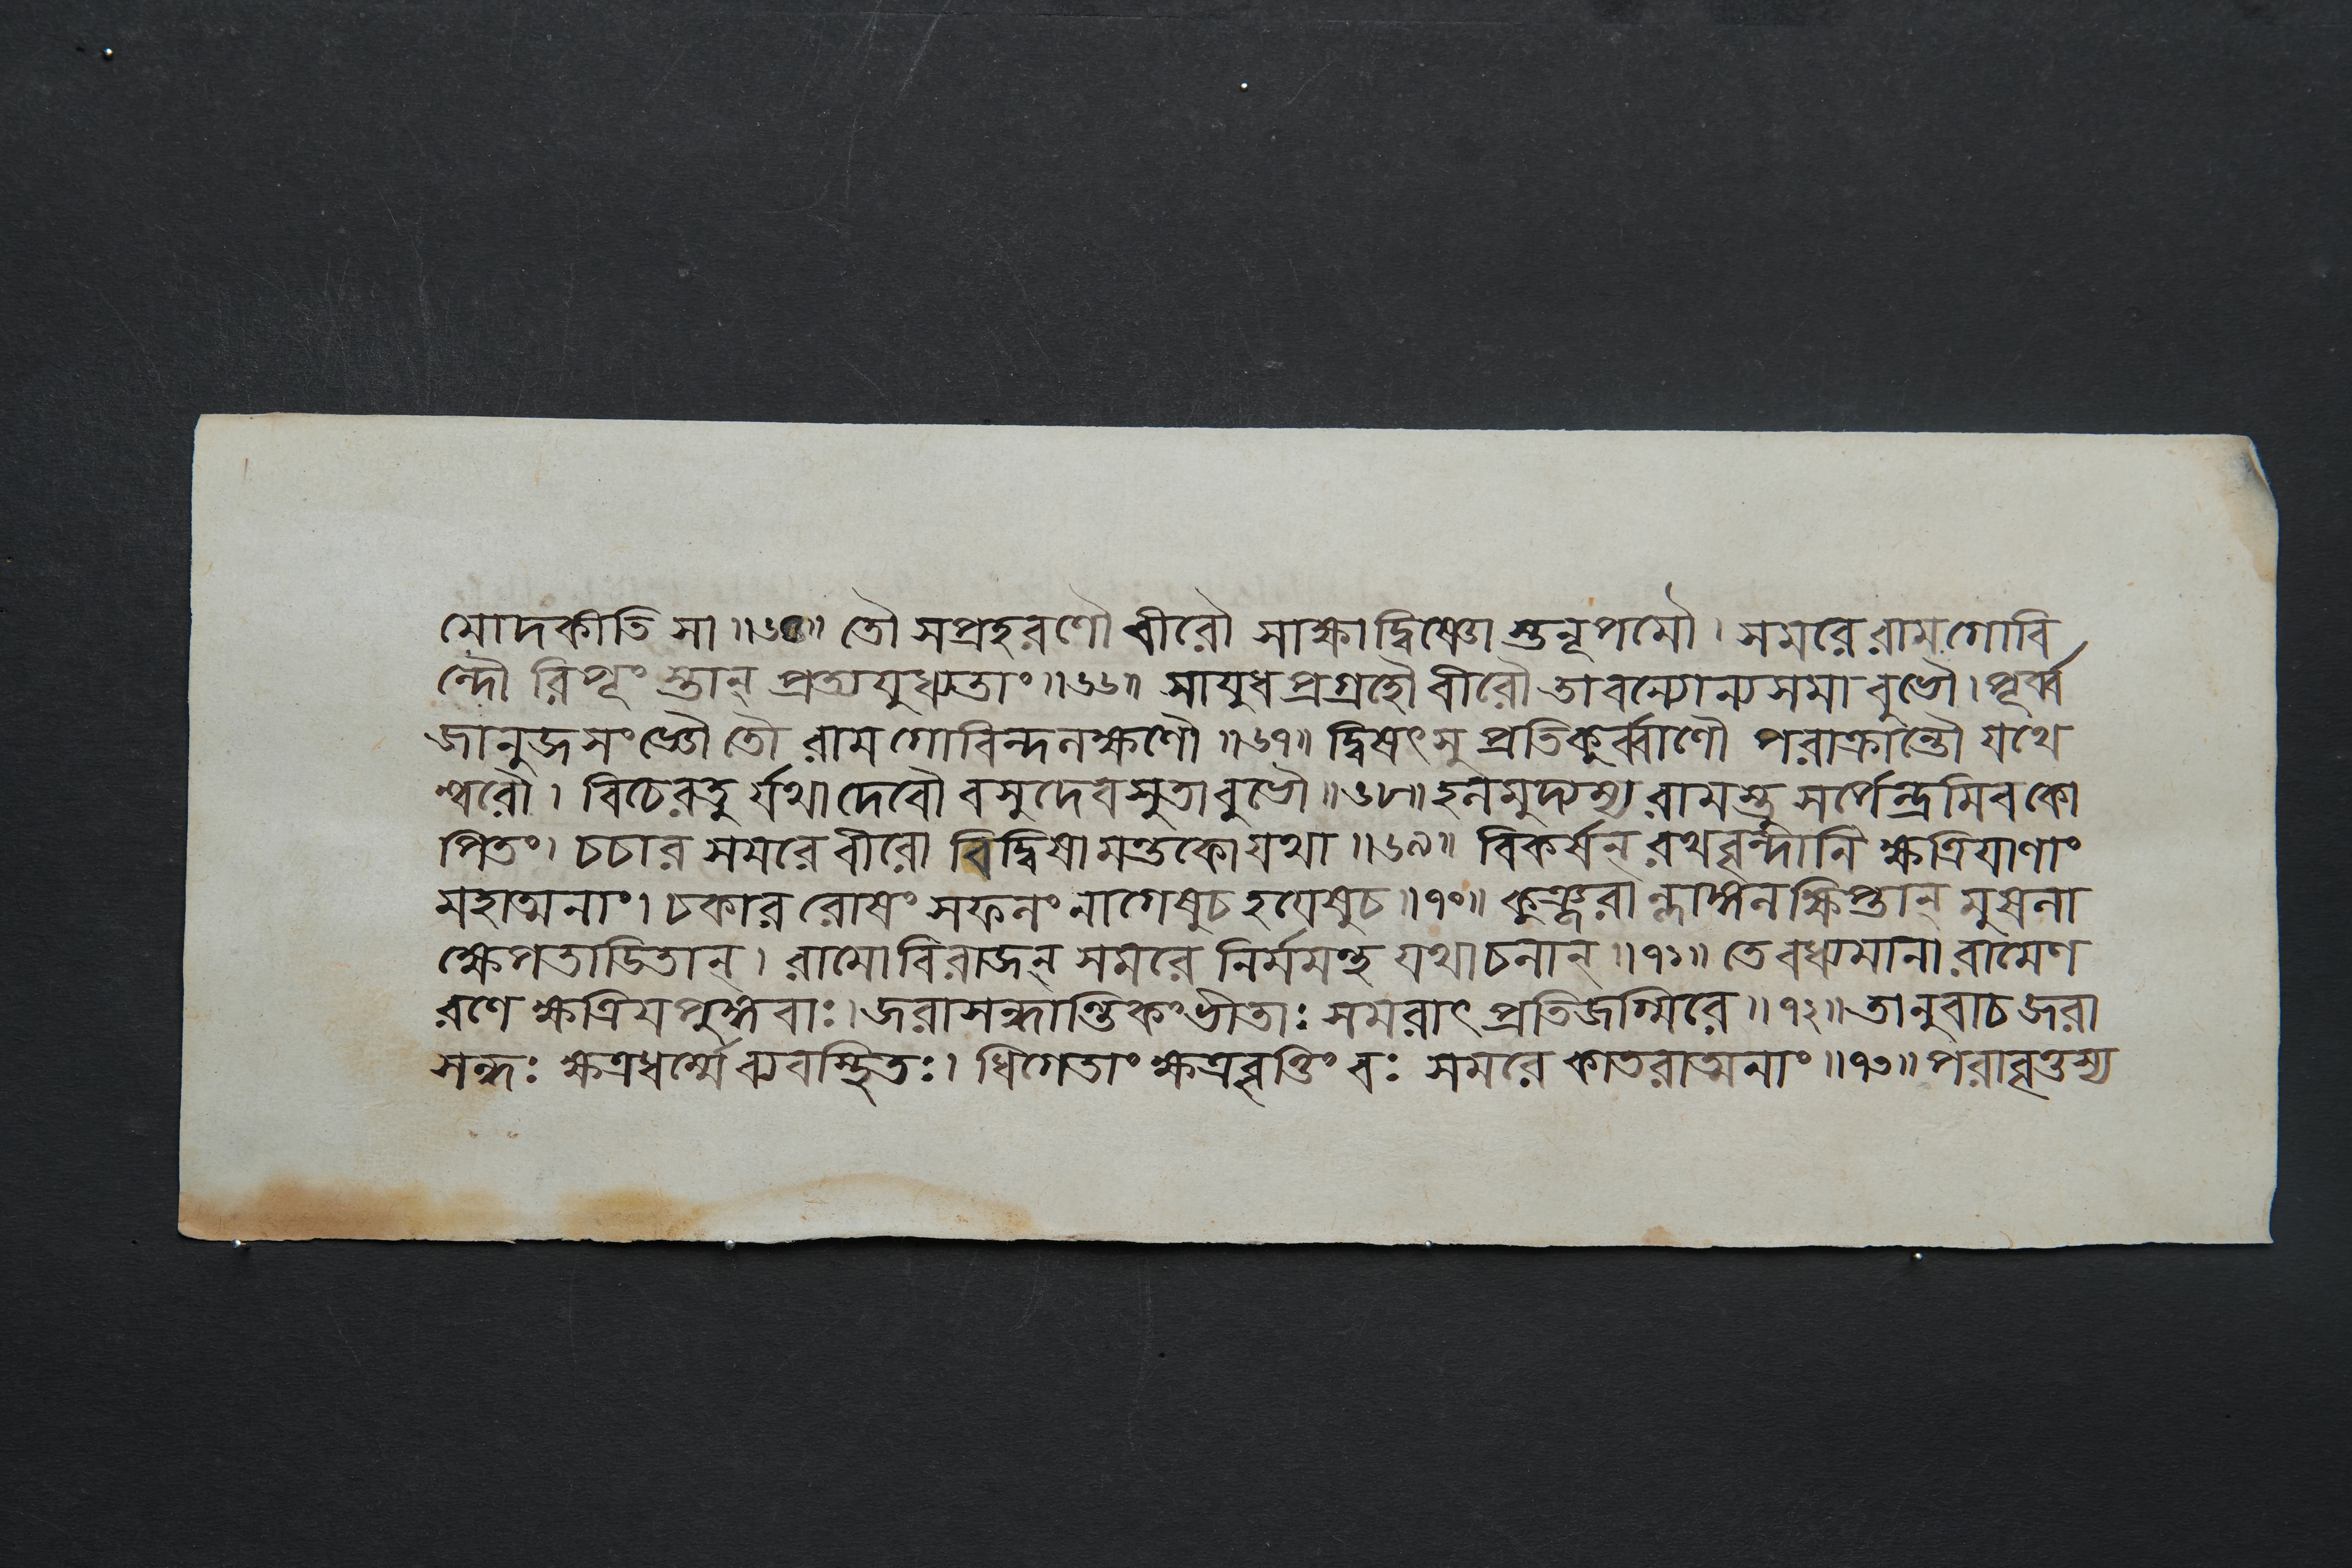 মোদকীতি সা॥৬৫॥ তৌ সপ্রহরণৌ বীরৌ সাক্ষাদ্বিষ্ণো স্তনূপমৌ। সমরে রামগোবি
ন্দৌ রিপূং স্তান্ প্রত্যযুধ্যতাং॥৬৬॥ সাযুধপ্রগ্রহৌ বীরৌ তাবন্যোন্যসমা বুভৌ। পূর্ব্ব
জানুজসংজ্ঞৌ তৌ রামগোবিন্দলক্ষণৌ॥৬৭॥ দ্বিষৎসু প্রতিকুর্ব্বাণৌ পরাক্রান্তৌ যথে
শ্বরৌ। বিচেরতু র্যথাদেবৌ বসুদেবসুতাবুভৌ॥৬৮॥ হলমুদ্যম্য রামস্তু সর্পেন্দ্রমিবকো
পিতং। চচার সমরে বীরো বিদ্বিষামন্তকোযথা॥৬৯॥ বিকর্ষন্ রথবৃন্দানি ক্ষত্রিযাণাং
মহাত্মনাং। চকার রোষং সফলং নাগেষুচ হযেষুচ॥৭০॥ কুঞ্জরা ন্লাঙ্গলক্ষিপ্তান্ মুষলা
ক্ষেপতাডিতান্। রামোবিরাজন্ সমরে নির্মমন্থ যথাচলান্॥৭১॥ তে বধ্যমানা রামেণ
রণে ক্ষত্রিযপুঙ্গবাঃ। জরাসন্ধান্তিকং ভীতাঃ সমরাৎ প্রতিজগ্মিরে॥৭২॥ তানুবাচ জরা
সন্ধঃ ক্ষত্রধর্ম্মে ব্যবস্থিতঃ। ধিগেতাং ক্ষত্রবৃত্তিং বঃ সমরে কাতরাত্মনাং॥৭৩॥ পরাবৃত্তস্য